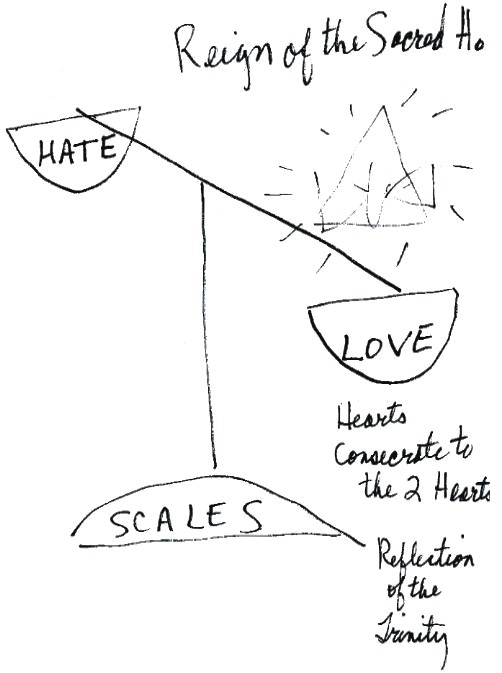 Reign of the Sacred H.
HATE
LOVE
Hearts
Consecrate to
the 2 Hearts
SCALES
Reflection
of the
Trinity